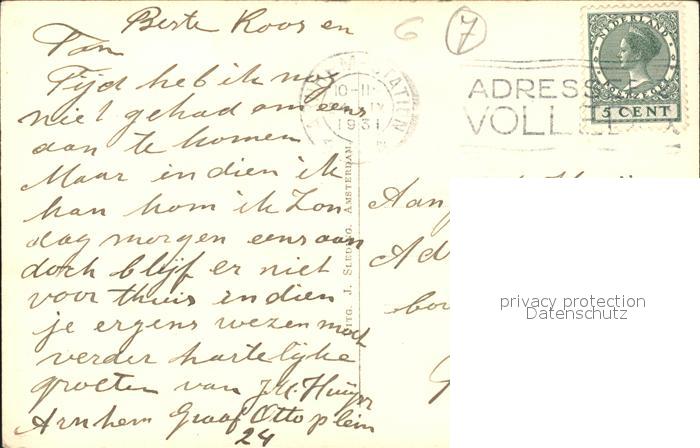 Beste Koos en
Tan
Tijd heb ik nog
niet gehad om eens
aan te komen
Maar indien ik
kan kom ik Zon-
dag morgen eens aan
doch blijf er niet
voor thuis indien
je ergens wezen moet
verder hartelijke
groeten van J.H. Huijer
Arnhem Graaf Ottoplein
24
6 7
10-11
1931
ADRESSE
VOLLE
NEDERLAND
POSTZEGEL
5 CENT
UITG. J. SLEDING. AMSTERDAM
Aan
Ad
bo
privacy protection
Datenschutz